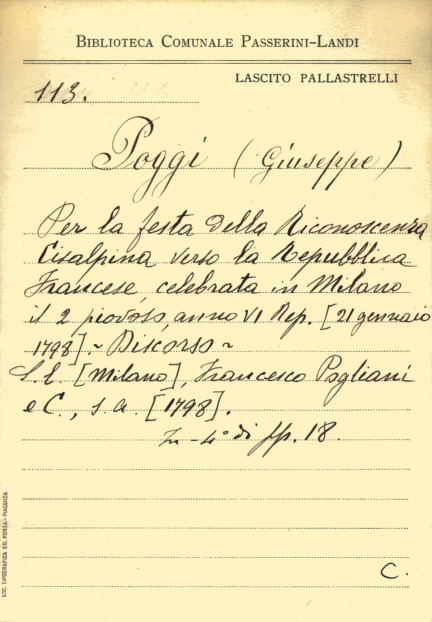 BIBLIOTECA COMUNALE PASSERINI-LANDI
LASCITO PALLASTRELLI
113.
Poggi (Giuseppe)
Per la festa della Riconoscenza
Cisalpina verso la Repubblica
Francese, celebrata in Milano
il 2 piovoso, anno VI Rep. [21 gennaio
1798].~ Discorso ~
S. l. [Milano], Francesco Pogliani
e C., s. a. [1798].
In-4° di pp. 18.
C.
SOC. TIPOGRAFICA ED. PORTA - PIACENZA